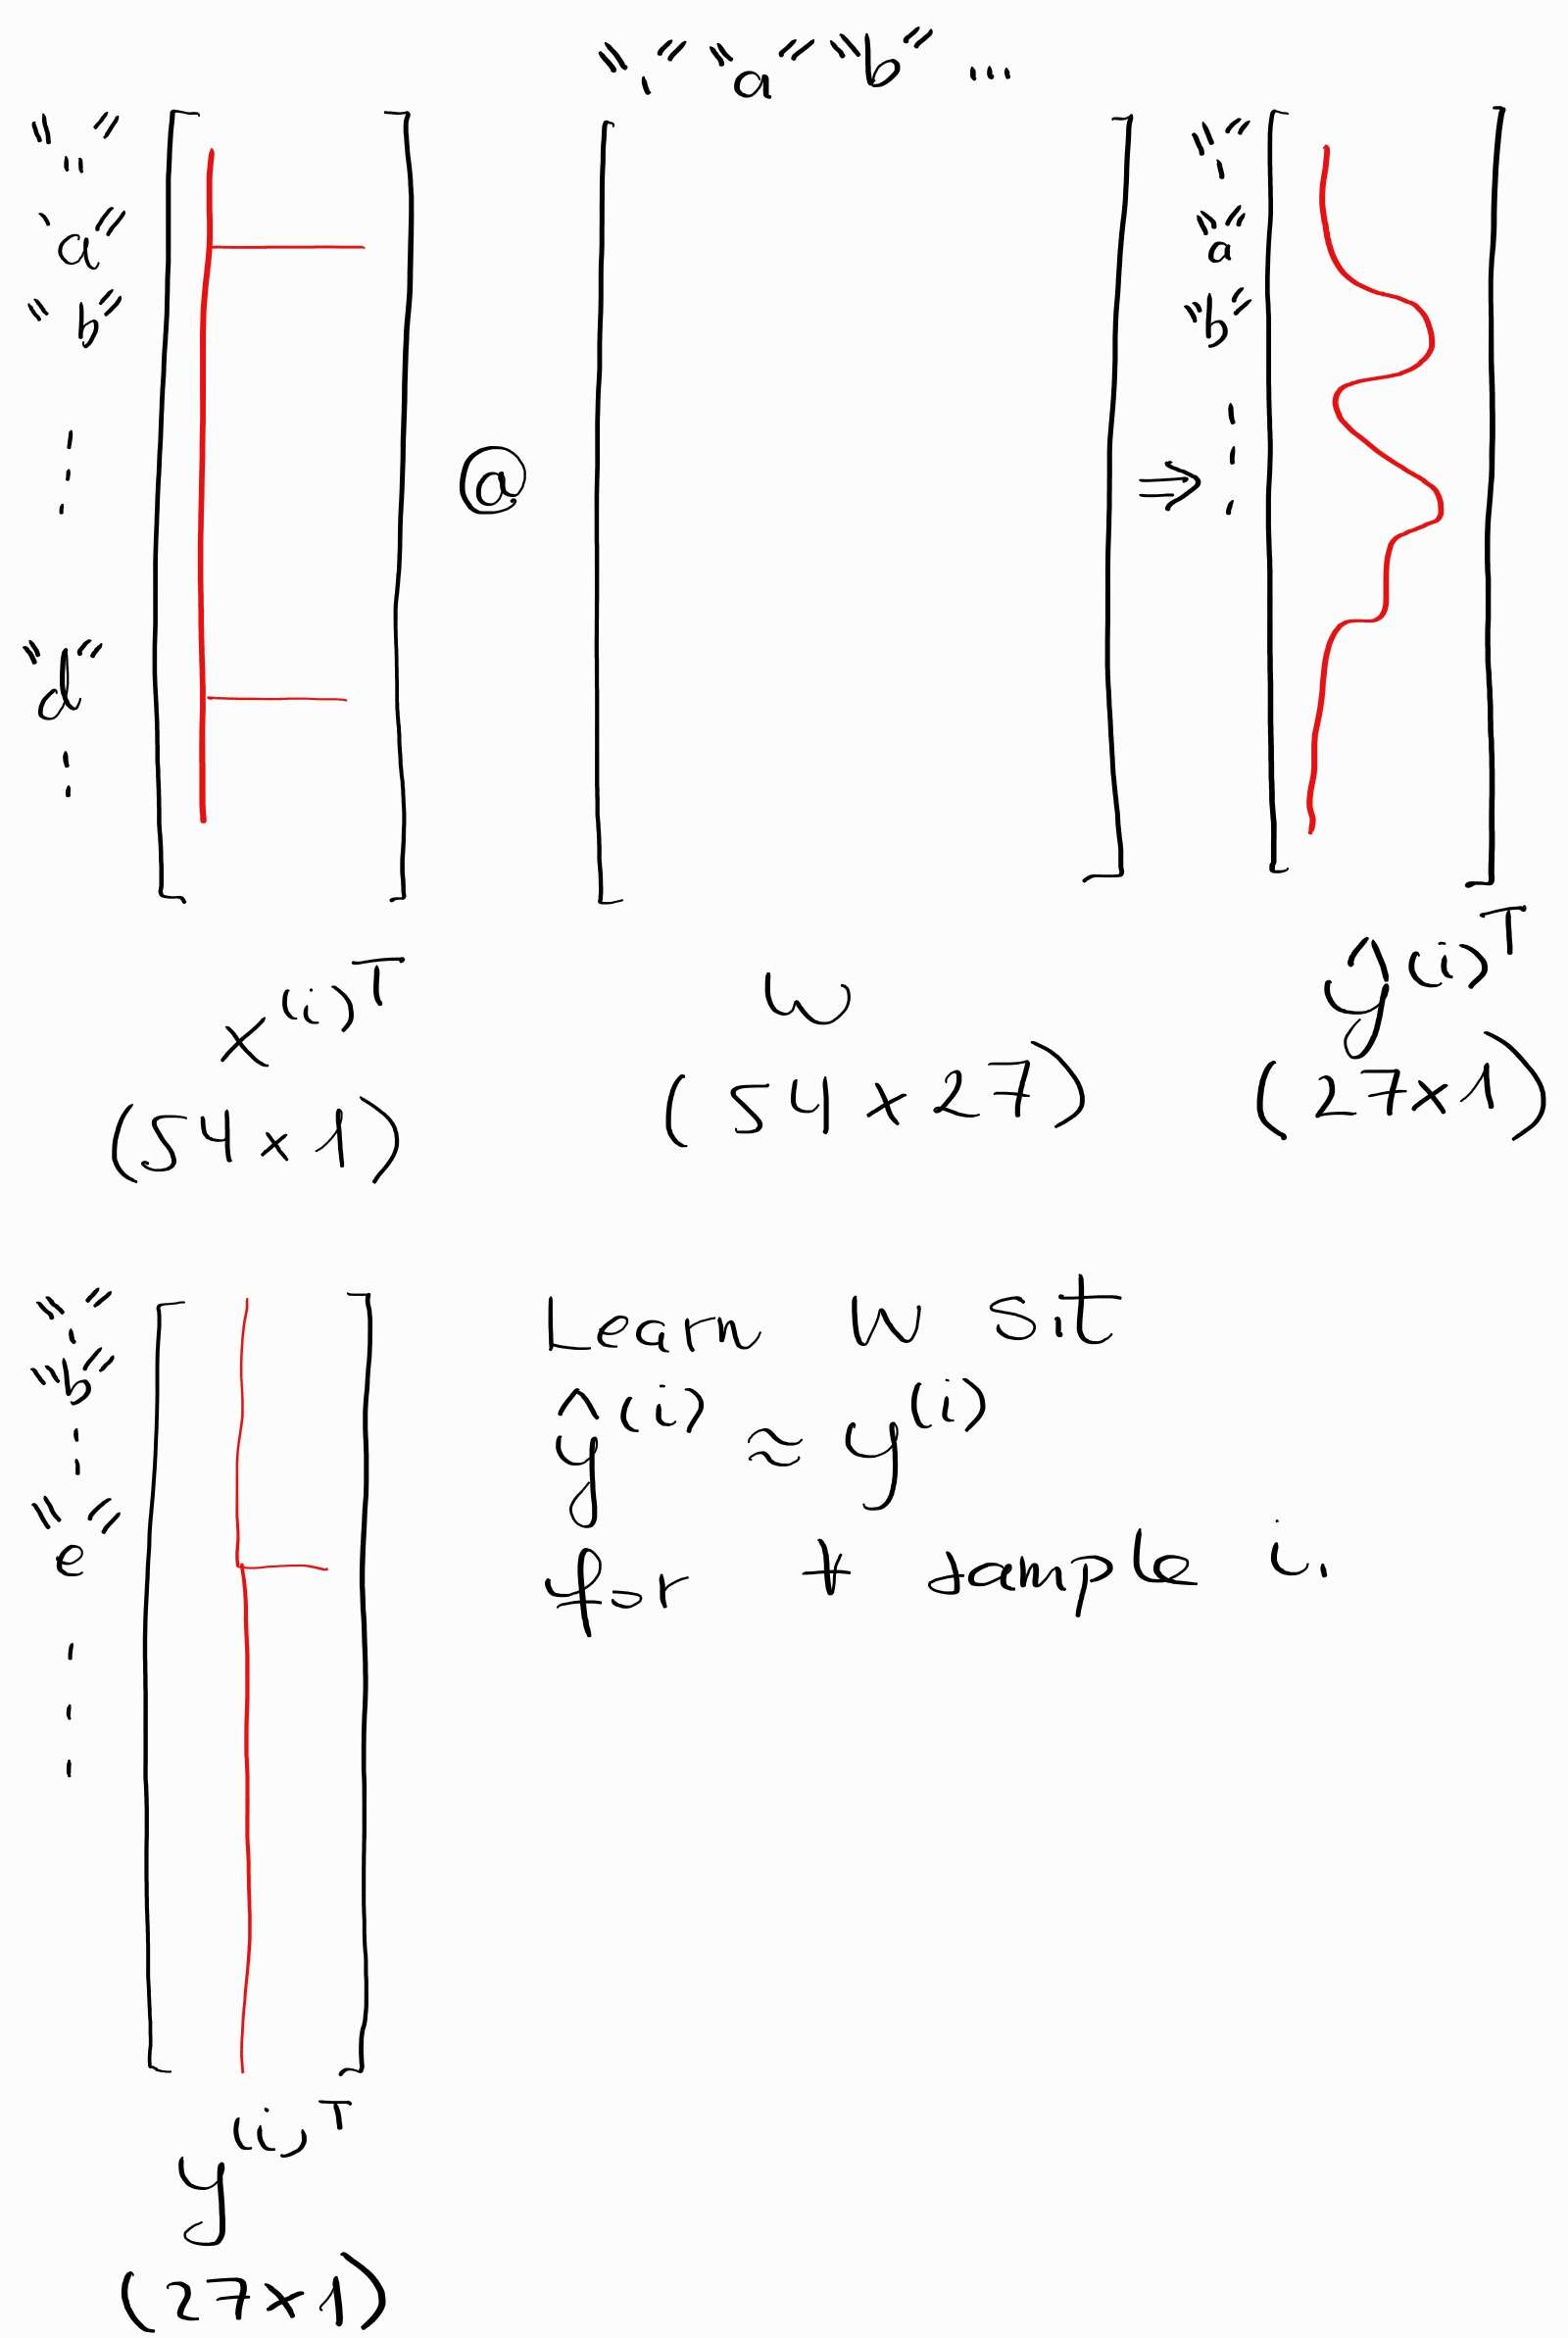 "." "a" "b" ...
".."
"a"
"b"
"d"
@
⇒
"."
"a"
"b"
x^(i)T
(54×1)
W
(54×27)
ŷ^(i)T
(27×1)
"."
"b"
"e"
y^(i)T
(27×1)
Learn W s.t
ŷ^(i) ≈ y^(i)
for + sample i.